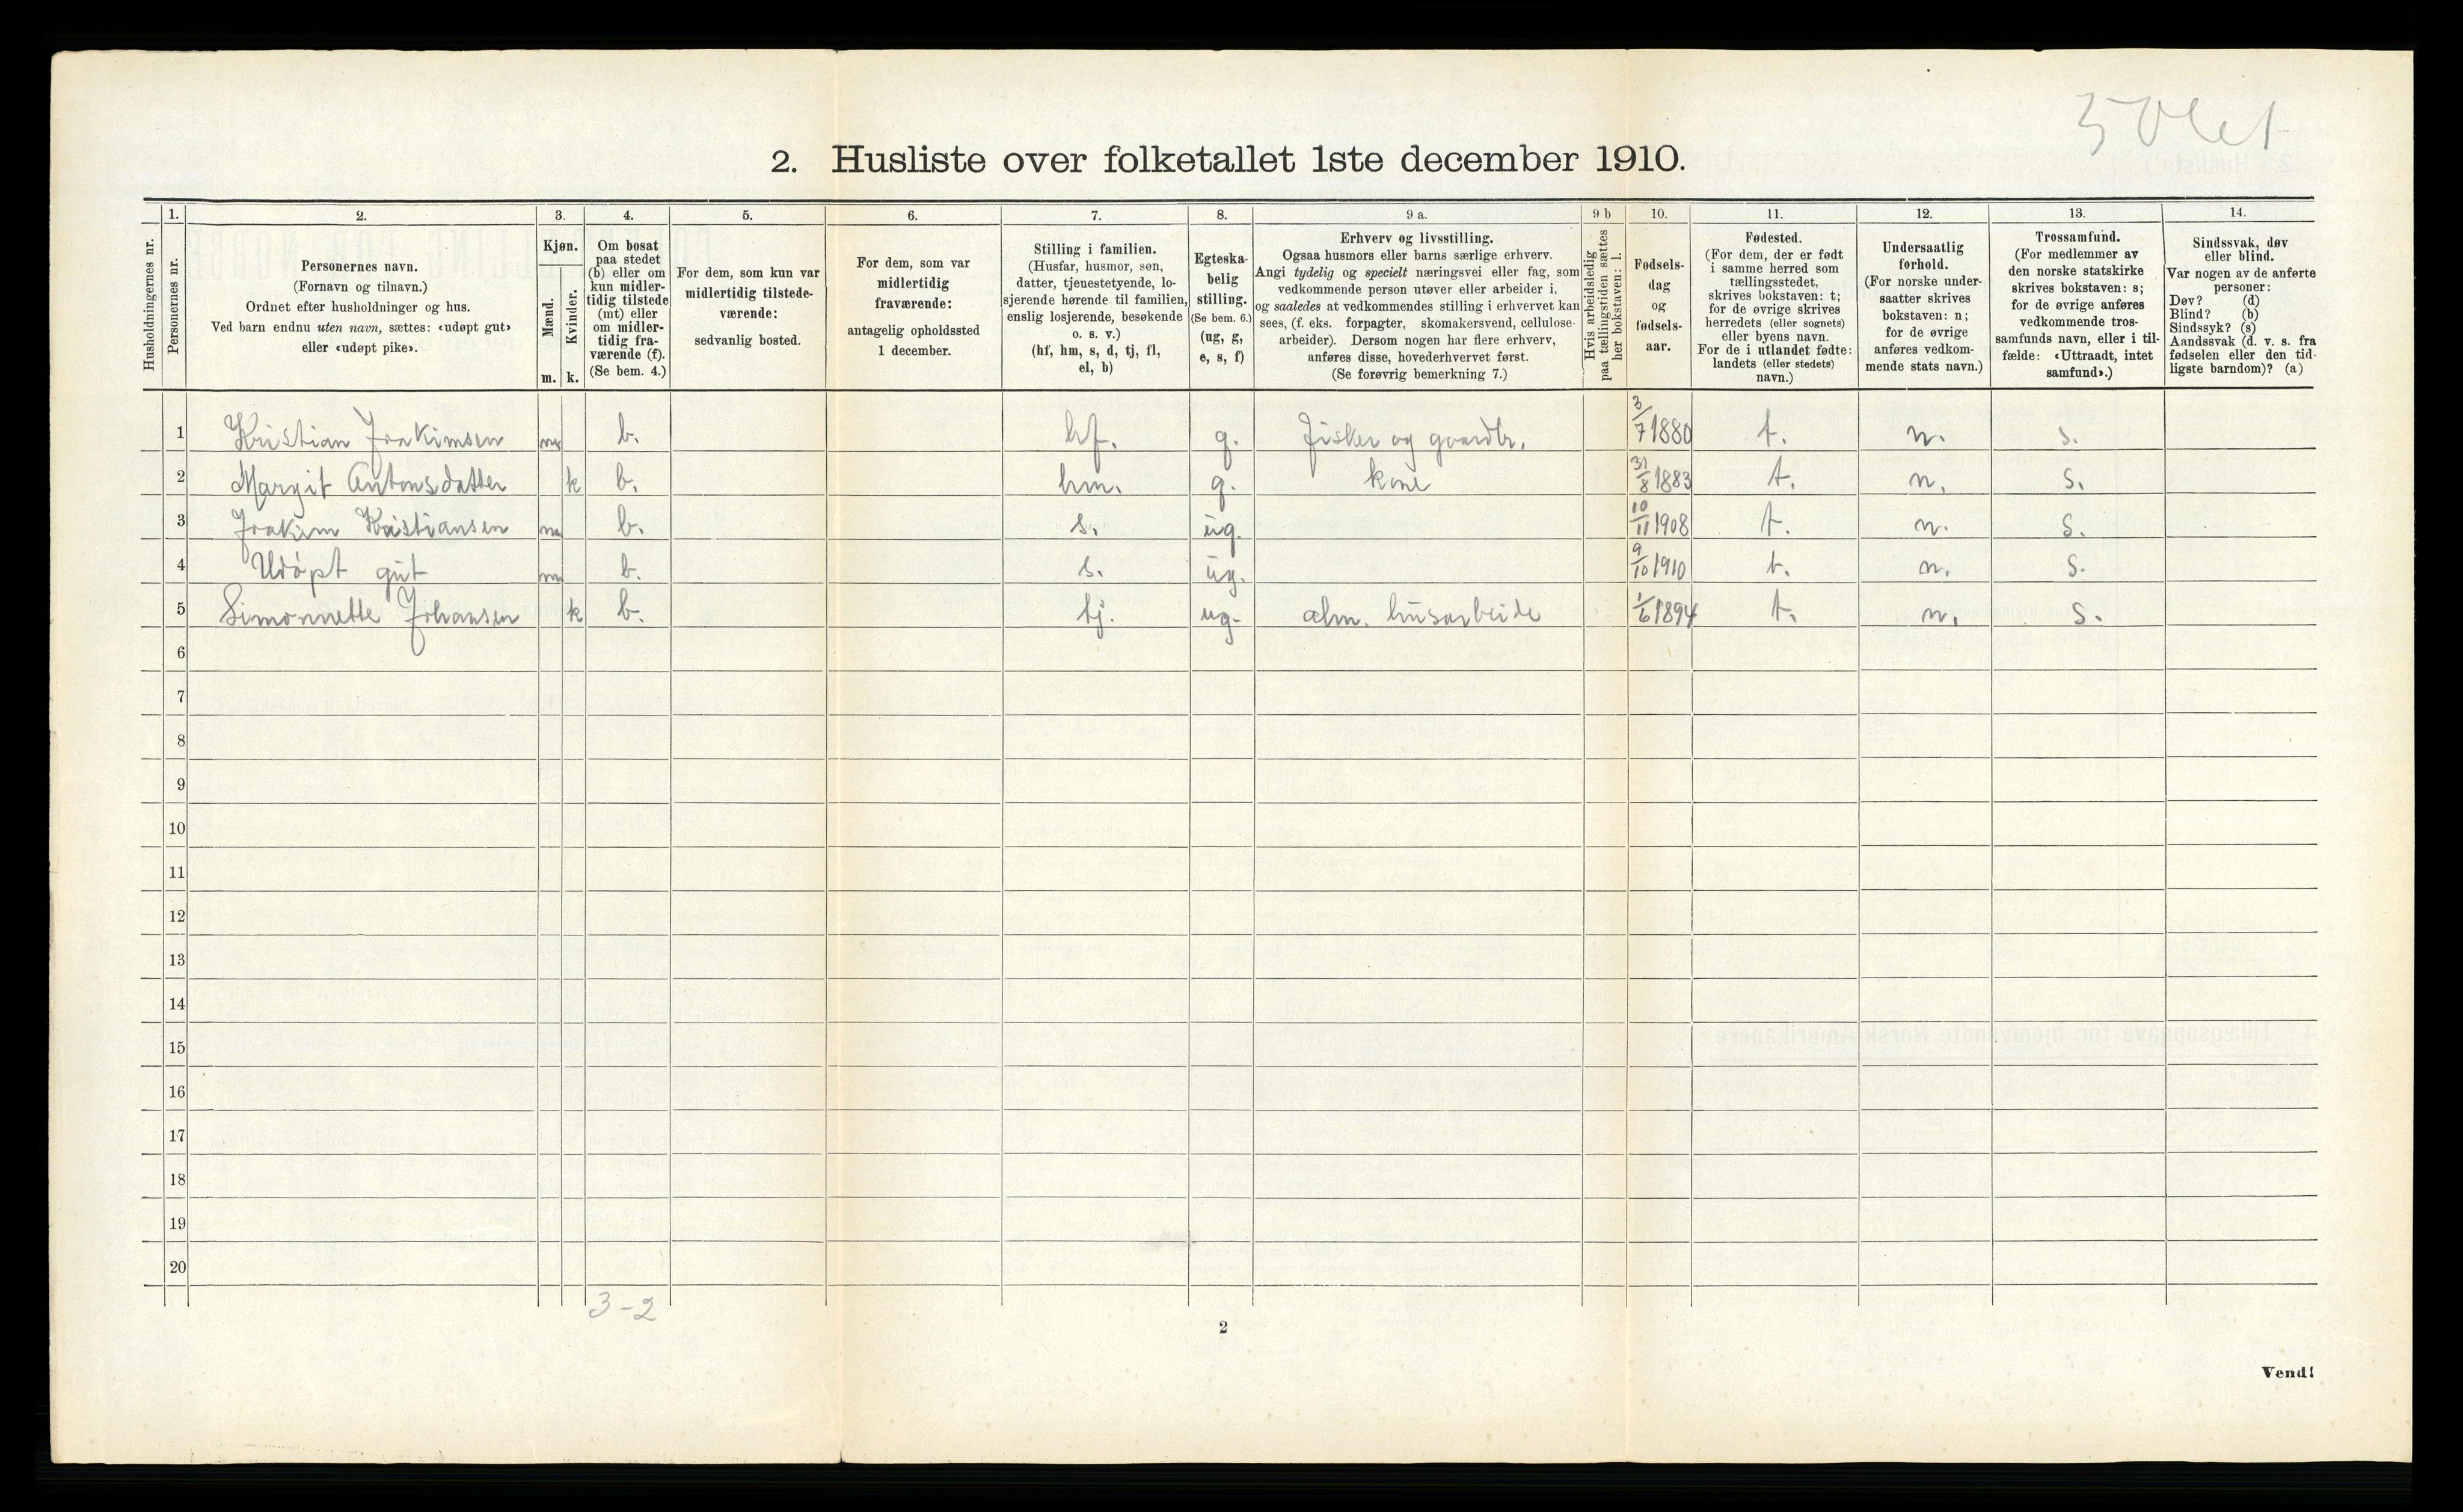 2. Husliste over folketallet 1ste december 1910.
Husholdningernes nr.
1.
Personernes nr.
2.
Personernes navn.
(Fornavn og tilnavn.)
Ordnet efter husholdninger og hus.
Ved barn endnu uten navn, sættes: «udøpt gut»
eller «udøpt pike».
3.
Kjøn.
Mænd.
Kvinder.
m. k.
4.
Om bosat
paa stedet
(b) eller om
kun midler-
tidig tilstede
(mt) eller
om midler-
tidig fra-
værende (f).
(Se bem. 4.)
5.
For dem, som kun var
midlertidig tilstede-
værende:
sedvanlig bosted.
6.
For dem, som var
midlertidig
fraværende:
antagelig opholdssted
1 december.
7.
Stilling i familien.
(Husfar, husmor, søn,
datter, tjenestetyende, lo-
sjerende hørende til familien,
enslig losjerende, besøkende
o. s. v.)
(hf, hm, s, d, tj, fl,
el, b)
8.
Egteska-
belig
stilling.
(Se bem. 6.)
(ug, g,
e, s, f)
9 a.
Erhverv og livsstilling.
Ogsaa husmors eller barns særlige erhverv.
Angi tydelig og specielt næringsvei eller fag, som
vedkommende person utøver eller arbeider i,
og saaledes at vedkommendes stilling i erhvervet kan
sees, (f. eks. forpagter, skomakersvend, cellulose-
arbeider). Dersom nogen har flere erhverv,
anføres disse, hovederhvervet først.
(Se forøvrig bemerkning 7.)
9 b
Hvis arbeidsledig
paa tællingstiden sættes
her bokstaven: l.
10.
Fødsels-
dag
og
fødsels-
aar.
11.
Fødested.
(For dem, der er født
i samme herred som
tællingsstedet,
skrives bokstaven: t;
for de øvrige skrives
herredets (eller sognets)
eller byens navn.
For de i utlandet fødte:
landets (eller stedets)
navn.)
12.
Undersaatlig
forhold.
(For norske under-
saatter skrives
bokstaven: n;
for de øvrige
anføres vedkom-
mende stats navn.)
13.
Trossamfund.
(For medlemmer av
den norske statskirke
skrives bokstaven: s;
for de øvrige anføres
vedkommende tros-
samfunds navn, eller i til-
fælde: «Uttraadt, intet
samfund».)
14.
Sindssvak, døv
eller blind.
Var nogen av de anførte
personer:
Døv? (d)
Blind? (b)
Sindssyk? (s)
Aandssvak (d. v. s. fra
fødselen eller den tid-
ligste barndom)? (a)
1 Kristian Joakimsen m b. hf. g. Fisker og gaardbr. 3/7 1880 t. n. s.
2 Margit Antonsdatter k b. hm. g. kone 31/8 1883 t. n. s.
3 Joakim Kristiansen m b. s. ug. 10/11 1908 t. n. s.
4 Udøpt gut m b. s. ug. 9/10 1910 t. n. s.
5 Simonette Johansen k b. tj. ug. alm. husarbeide 1/6 1894 t. n. s.
6
7
8
9
10
11
12
13
14
15
16
17
18
19
20
3-2
2
Vend!